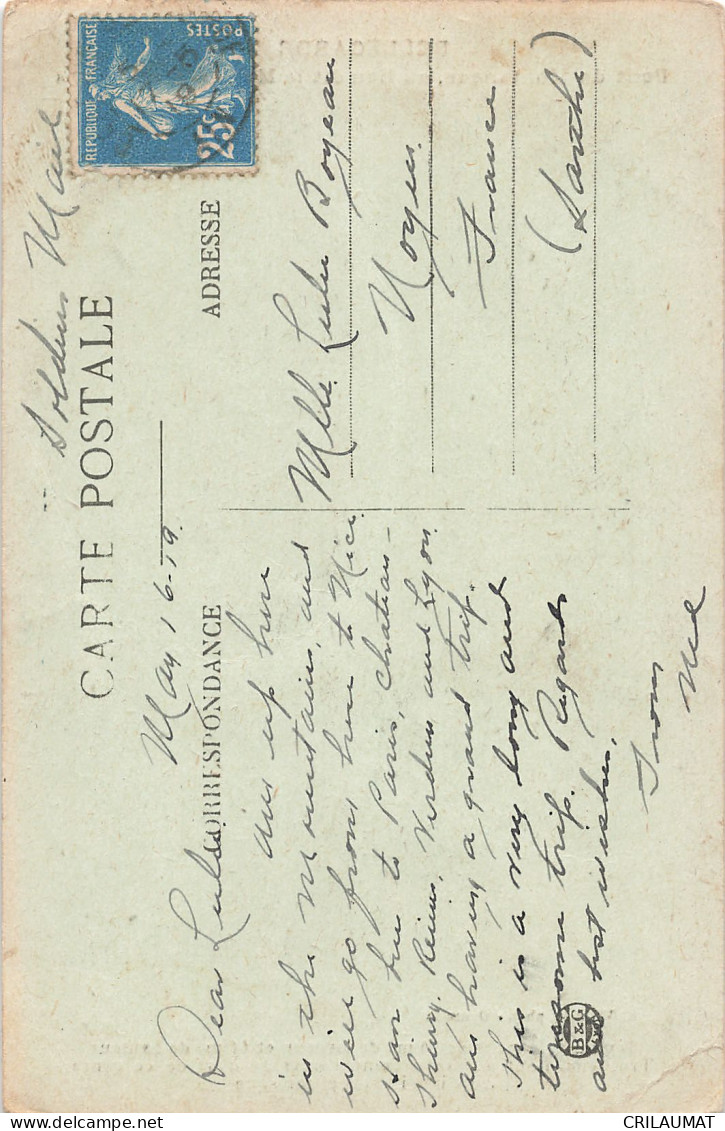 Soldiers Mail
CARTE POSTALE
RÉPUBLIQUE FRANÇAISE
POSTES
25c
May 16-19
CORRESPONDANCE
Dear Lulu
Am up here
in the mountains, and
will go from here to Nice
then to Paris, Chateau-
Thierry, Reims, Verdun and Lyon
am having a grand trip.
This is a very long and
tiresome trip. Regards
and best wishes.
From
Me
B&G
ADRESSE
Mlle. Lulu Boyeau
Noyen
France
(Sarthe)
CRILAUMAT